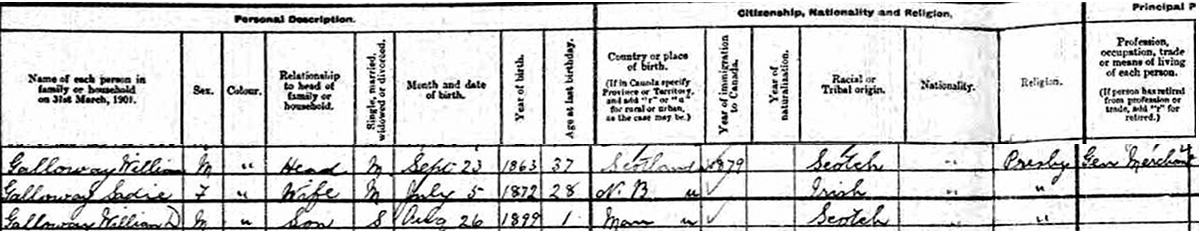 Personal Description. Citizenship, Nationality and Religion. Principal P
Name of each person in family or household on 31st March, 1901. Sex. Colour. Relationship to head of family or household. Single, married, widowed or divorced. Month and date of birth. Year of birth. Age at last birthday. Country or place of birth. (If in Canada specify Province or Territory, and add "r" or "u" for rural or urban, as the case may be.) Year of immigration to Canada. Year of naturalization. Racial or Tribal origin. Nationality. Religion. Profession, occupation, trade or means of living of each person. (If person has retired from profession or trade, add "r" for retired.)
Galloway William M " Head M Sept 23 1863 37 Scotland 1879 Scotch " Presby Gen Merchant
Galloway Sadie F " Wife M July 5 1872 28 N. B. u Irish " "
Galloway William D M " Son S Aug 26 1899 1 Man u Scotch " "